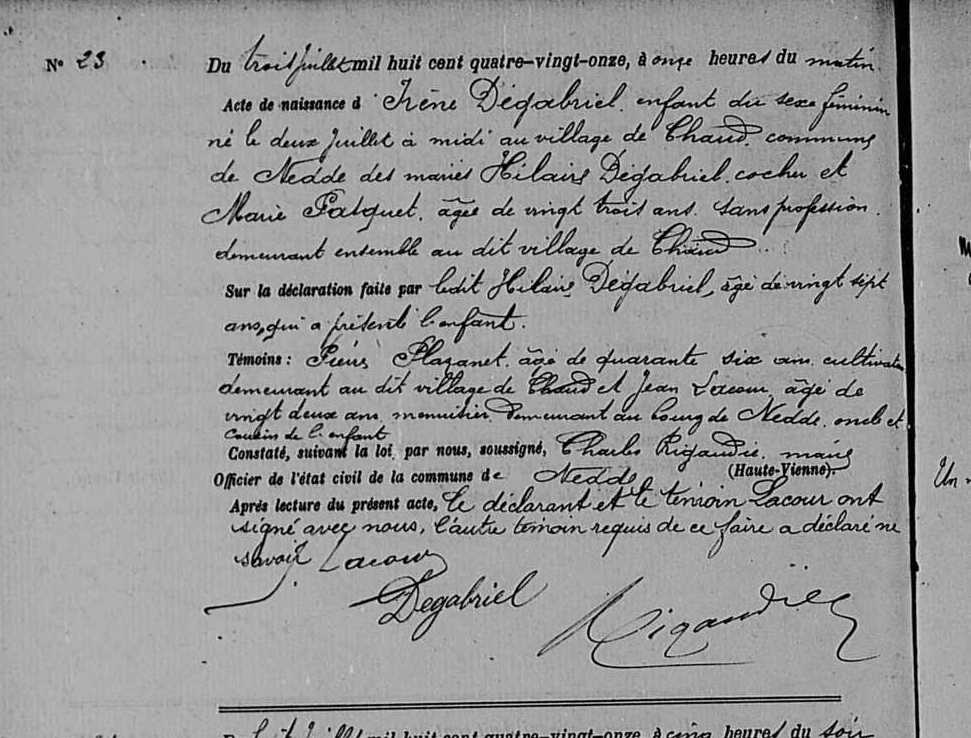 N° 23
Du trois juillet mil huit cent quatre-vingt-onze, à onze heures du matin
Acte de naissance d'Irène Dégabriel, enfant du sexe féminin
né le deux juillet à midi au village de Chaud, commune
de Nedde des mariés Hilaire Dégabriel, cocher et
Marie Pasquet, âgée de vingt trois ans, sans profession,
demeurant ensemble au dit village de Chaud
Sur la déclaration faite par ledit Hilaire Dégabriel, âgé de vingt sept
ans, qui a présenté l'enfant.
Témoins : Pierre Plazanet, âgé de quarante six ans, cultivateur
demeurant au dit village de Chaud et Jean Lacour, âgé de
vingt deux ans, menuisier, demeurant au bourg de Nedde, oncle et
cousin de l'enfant
Constaté, suivant la loi, par nous, soussigné, Charles Rigaudie, maire
Officier de l'état civil de la commune de Nedde (Haute-Vienne).
Après lecture du présent acte, le déclarant et le témoin Lacour ont
signé avec nous, l'autre témoin requis de ce faire a déclaré ne
savoir Lacour
Degabriel
Rigaudie
huit juillet mil huit cent quatre-vingt-onze, à cinq heures du soir
Un